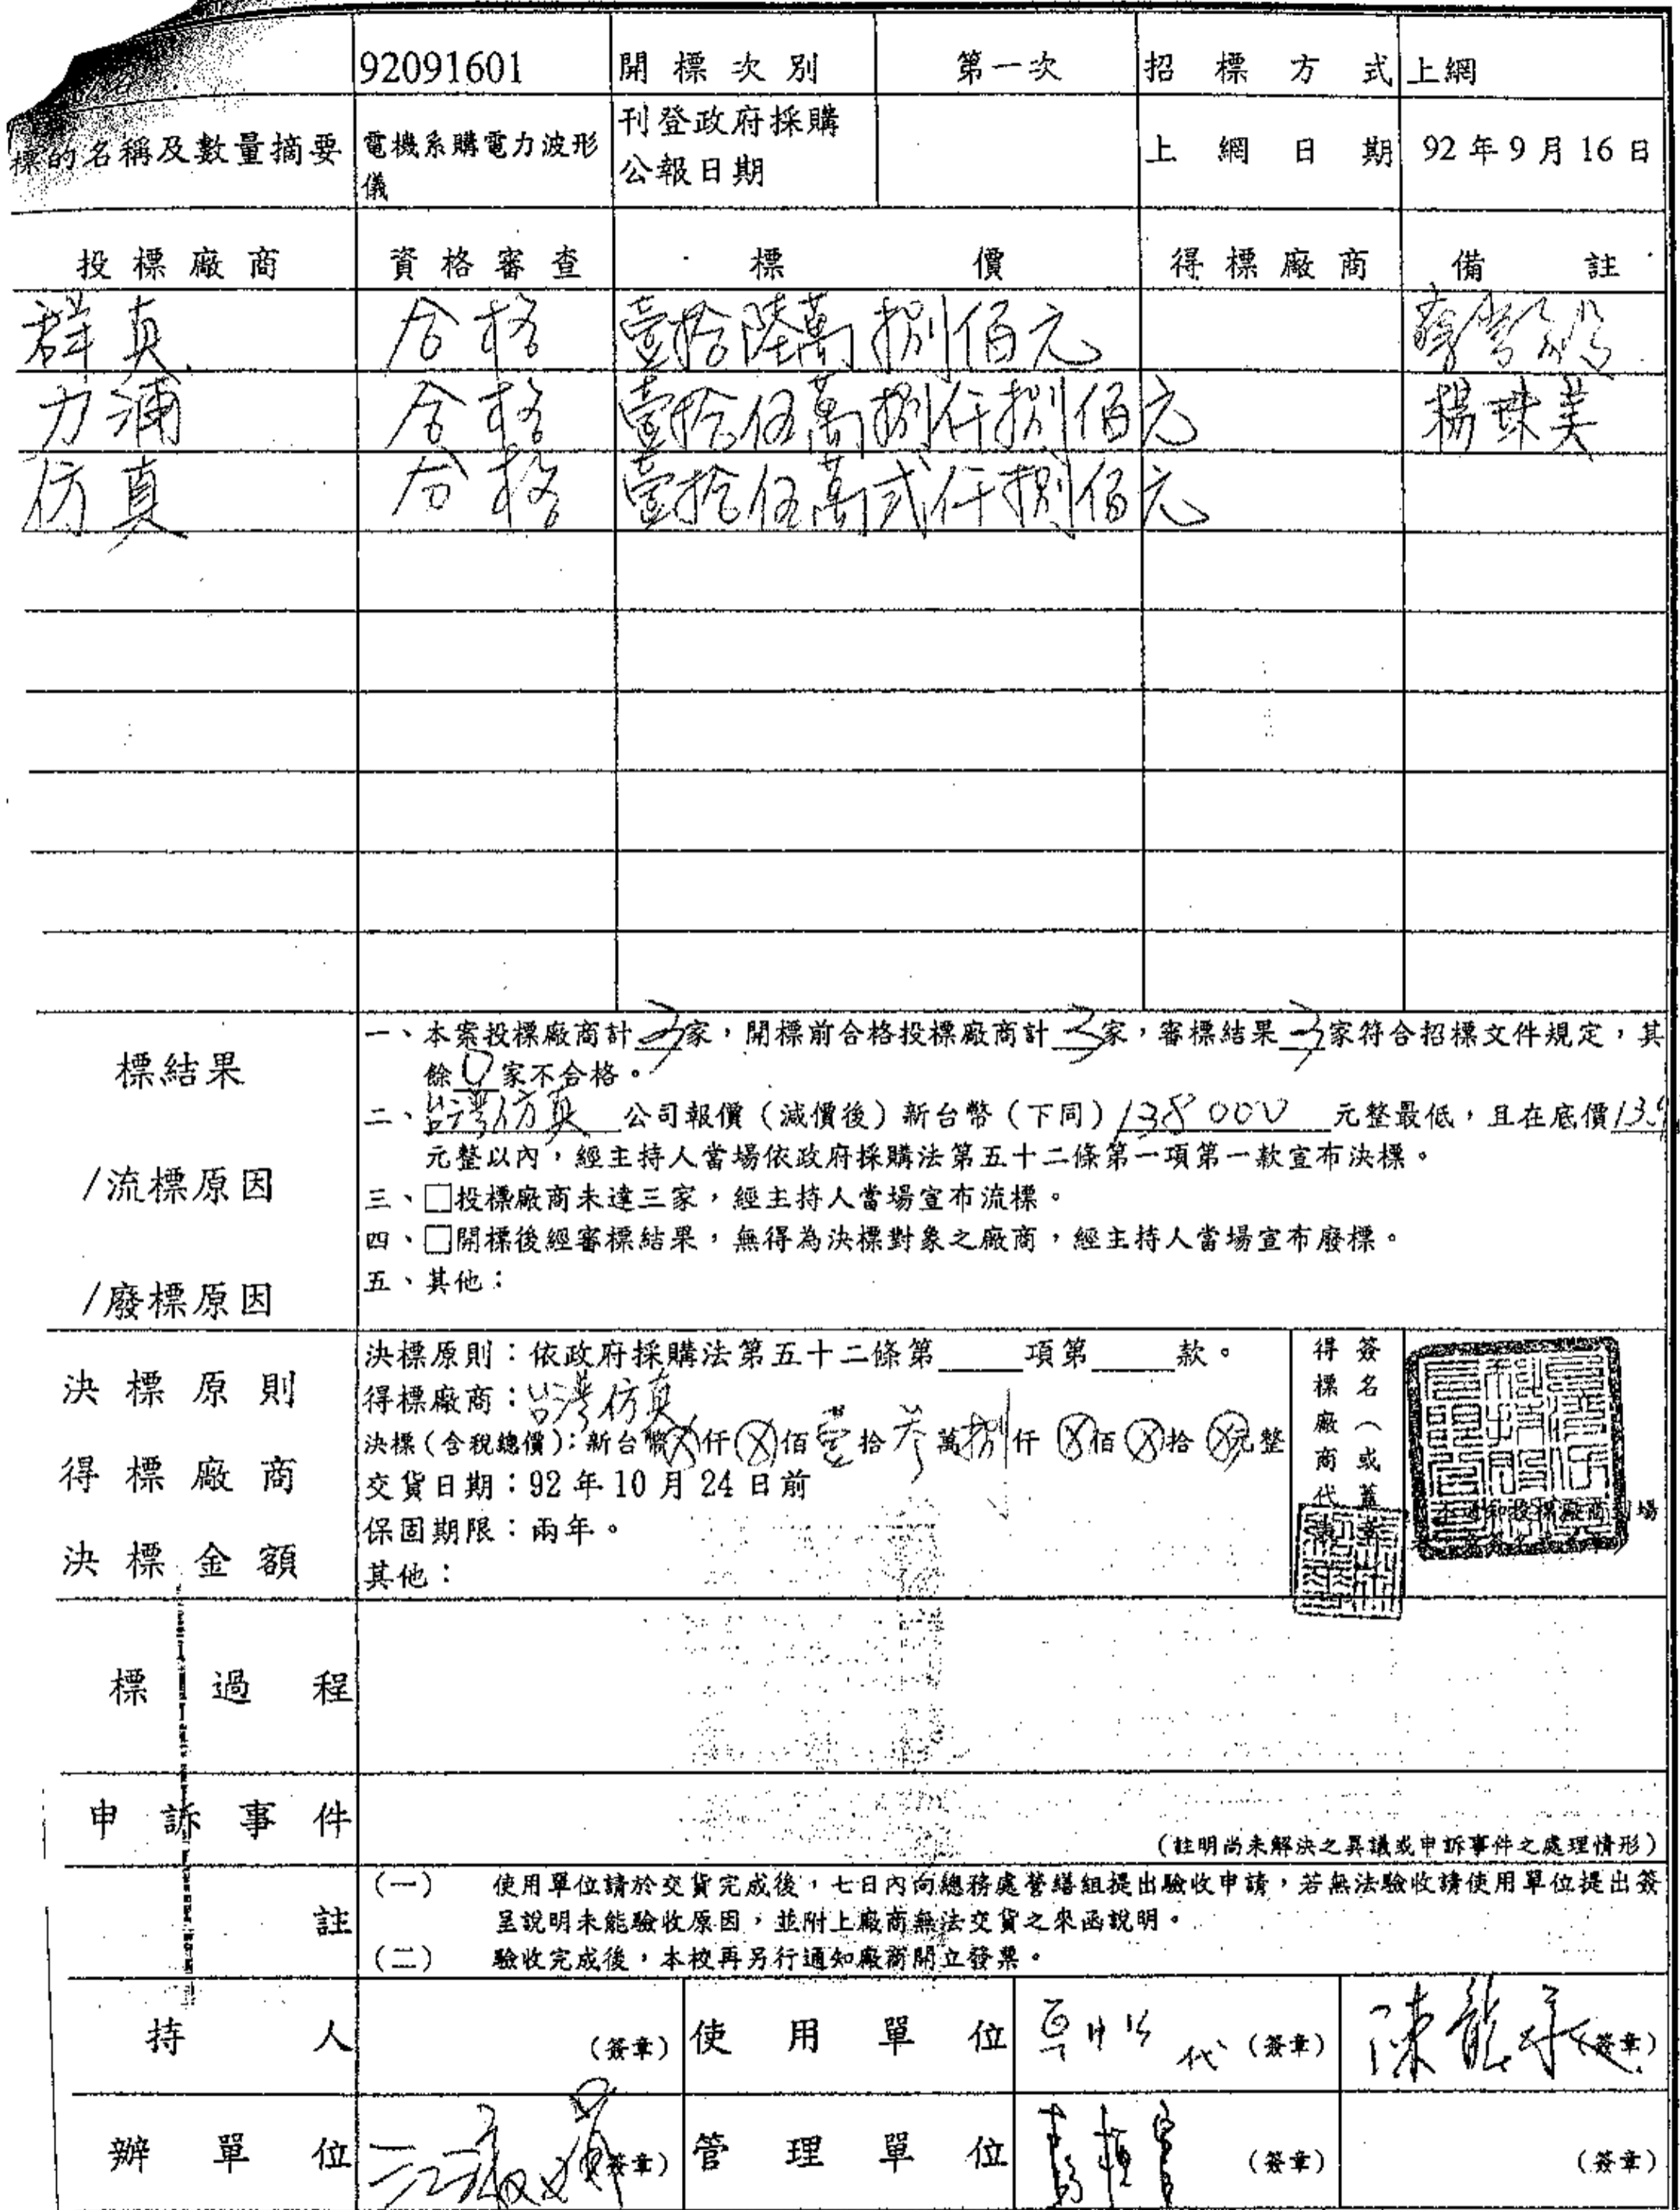 92091601 開標次別 第一次 招標方式 上網
標的名稱及數量摘要 電機系購電力波形儀 刊登政府採購公報日期 上網日期 92年9月16日
投標廠商 資格審查 標價 得標廠商 備註
群真 合格 壹拾陸萬捌佰元
力浦 合格 壹拾伍萬捌仟捌佰元 楊珠美
仿真 合格 壹拾伍萬弍仟捌佰元
標結果
/流標原因
/廢標原因
一、本案投標廠商計3家,開標前合格投標廠商計3家,審標結果3家符合招標文件規定,其
餘0家不合格。
二、台灣仿真公司報價(減價後)新台幣(下同)138000元整最低,且在底價139
元整以內,經主持人當場依政府採購法第五十二條第一項第一款宣布決標。
三、□投標廠商未達三家,經主持人當場宣布流標。
四、□開標後經審標結果,無得為決標對象之廠商,經主持人當場宣布廢標。
五、其他:
決標原則
得標廠商
決標金額
決標原則:依政府採購法第五十二條第____項第____款。
得標廠商:台灣仿真
決標(含稅總價):新台幣Ⓧ仟Ⓧ佰壹拾参萬捌仟Ⓧ佰Ⓧ拾Ⓧ元整
交貨日期:92年10月24日前
保固期限:兩年。
其他:
得標廠商代
簽名(或蓋章
投標廠商到場
標過程
申訴事件
(註明尚未解決之異議或申訴事件之處理情形)
註
(一) 使用單位請於交貨完成後,七日內向總務處營繕組提出驗收申請,若無法驗收請使用單位提出簽
呈說明未能驗收原因,並附上廠商無法交貨之來函說明。
(二) 驗收完成後,本校再另行通知廠商開立發票。
持人 (簽章) 使用單位 代 (簽章) 陳龍 (簽章)
辦單位 (簽章) 管理單位 (簽章) (簽章)